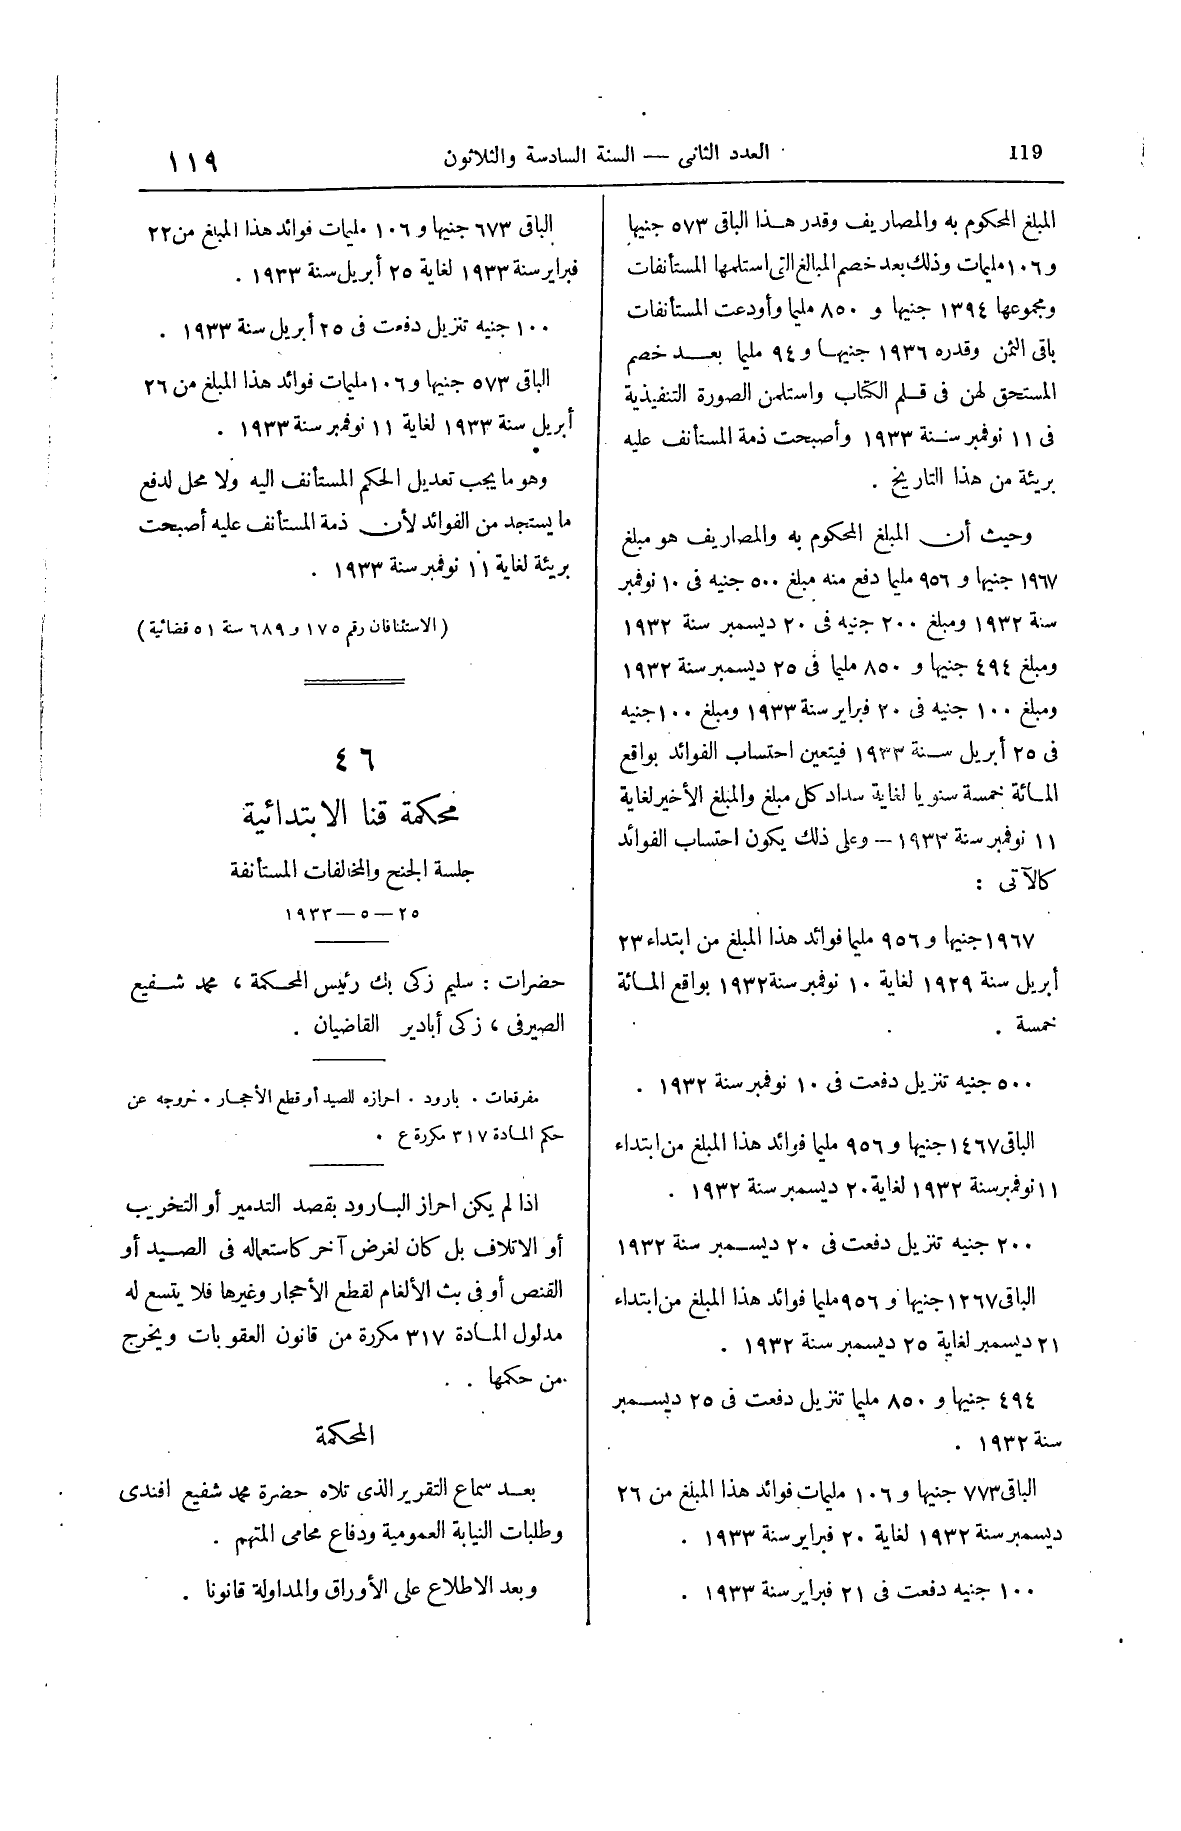 119
العدد الثانى — السنة السادسة والثلاثون
١١٩
المبلغ المحكوم به والمصاريف وقدر هذا الباقى ٥٧٣ جنيها
و ١٠٦ مليمات وذلك بعد خصم المبالغ التى استلمها المستأنفات
ومجموعها ١٣٩٤ جنيها و ٨٥٠ مليما وأودعت المستأنفات
باقى الثمن وقدره ١٩٣٦ جنيها و ٩٤ مليما بعد خصم
المستحق لهن فى قلم الكتاب واستلمن الصورة التنفيذية
فى ١١ نوفمبر سنة ١٩٣٣ وأصبحت ذمة المستأنف عليه
بريئة من هذا التاريخ .
وحيث أن المبلغ المحكوم به والمصاريف هو مبلغ
١٩٦٧ جنيها و ٩٥٦ مليما دفع منه مبلغ ٥٠٠ جنيه فى ١٠ نوفمبر
سنة ١٩٣٢ ومبلغ ٢٠٠ جنيه فى ٢٠ ديسمبر سنة ١٩٣٢
ومبلغ ٤٩٤ جنيها و ٨٥٠ مليما فى ٢٥ ديسمبر سنة ١٩٣٢
ومبلغ ١٠٠ جنيه فى ٢٠ فبراير سنة ١٩٣٣ ومبلغ ١٠٠ جنيه
فى ٢٥ أبريل سنة ١٩٣٣ فيتعين احتساب الفوائد بواقع
المائة خمسة سنويا لغاية سداد كل مبلغ والمبلغ الأخير لغاية
١١ نوفمبر سنة ١٩٣٣ — وعلى ذلك يكون احتساب الفوائد
كالآتى :
١٩٦٧ جنيها و ٩٥٦ مليما فوائد هذا المبلغ من ابتداء ٢٣
أبريل سنة ١٩٢٩ لغاية ١٠ نوفمبر سنة ١٩٣٢ بواقع المائة
خمسة .
٥٠٠ جنيه تنزيل دفعت فى ١٠ نوفمبر سنة ١٩٣٢ .
الباقى ١٤٦٧ جنيها و ٩٥٦ مليما فوائد هذا المبلغ من ابتداء
١١ نوفمبر سنة ١٩٣٢ لغاية ٢٠ ديسمبر سنة ١٩٣٢ .
٢٠٠ جنيه تنزيل دفعت فى ٢٠ ديسمبر سنة ١٩٣٢
الباقى ١٢٦٧ جنيها و ٩٥٦ مليما فوائد هذا المبلغ من ابتداء
٢١ ديسمبر لغاية ٢٥ ديسمبر سنة ١٩٣٢ .
٤٩٤ جنيها و ٨٥٠ مليما تنزيل دفعت فى ٢٥ ديسمبر
سنة ١٩٣٢ .
الباقى ٧٧٣ جنيها و ١٠٦ مليمات فوائد هذا المبلغ من ٢٦
ديسمبر سنة ١٩٣٢ لغاية ٢٠ فبراير سنة ١٩٣٣ .
١٠٠ جنيه دفعت فى ٢١ فبراير سنة ١٩٣٣ .
الباقى ٦٧٣ جنيها و ١٠٦ مليمات فوائد هذا المبلغ من ٢٢
فبراير سنة ١٩٣٣ لغاية ٢٥ أبريل سنة ١٩٣٣ .
١٠٠ جنيه تنزيل دفعت فى ٢٥ أبريل سنة ١٩٣٣ .
الباقى ٥٧٣ جنيها و ١٠٦ مليمات فوائد هذا المبلغ من ٢٦
أبريل سنة ١٩٣٣ لغاية ١١ نوفمبر سنة ١٩٣٣ .
وهو ما يجب تعديل الحكم المستأنف اليه ولا محل لدفع
ما يستجد من الفوائد لأن ذمة المستأنف عليه أصبحت
بريئة لغاية ١١ نوفمبر سنة ١٩٣٣ .
( الاستئنافان رقم ١٧٥ و ٦٨٩ سنة ٥١ قضائية )
٤٦
محكمة قنا الابتدائية
جلسة الجنح والمخالفات المستأنفة
٢٥ — ٥ — ١٩٣٣
حضرات : سليم زكى بك رئيس المحكمة ، محمد شفيع
الصيرفى ، زكى أبادير القاضيان .
مفرقعات . بارود . احرازه للصيد أو قطع الأحجار . خروجه عن
حكم المادة ٣١٧ مكررة ع .
اذا لم يكن احراز البارود بقصد التدمير أو التخريب
أو الاتلاف بل كان لغرض آخر كاستعماله فى الصيد أو
القنص أو فى بث الألغام لقطع الأحجار وغيرها فلا يتسع له
مدلول المادة ٣١٧ مكررة من قانون العقوبات ويخرج
من حكمها .
المحكمة
بعد سماع التقرير الذى تلاه حضرة محمد شفيع افندى
وطلبات النيابة العمومية ودفاع محامى المتهم .
وبعد الاطلاع على الأوراق والمداولة قانونا .